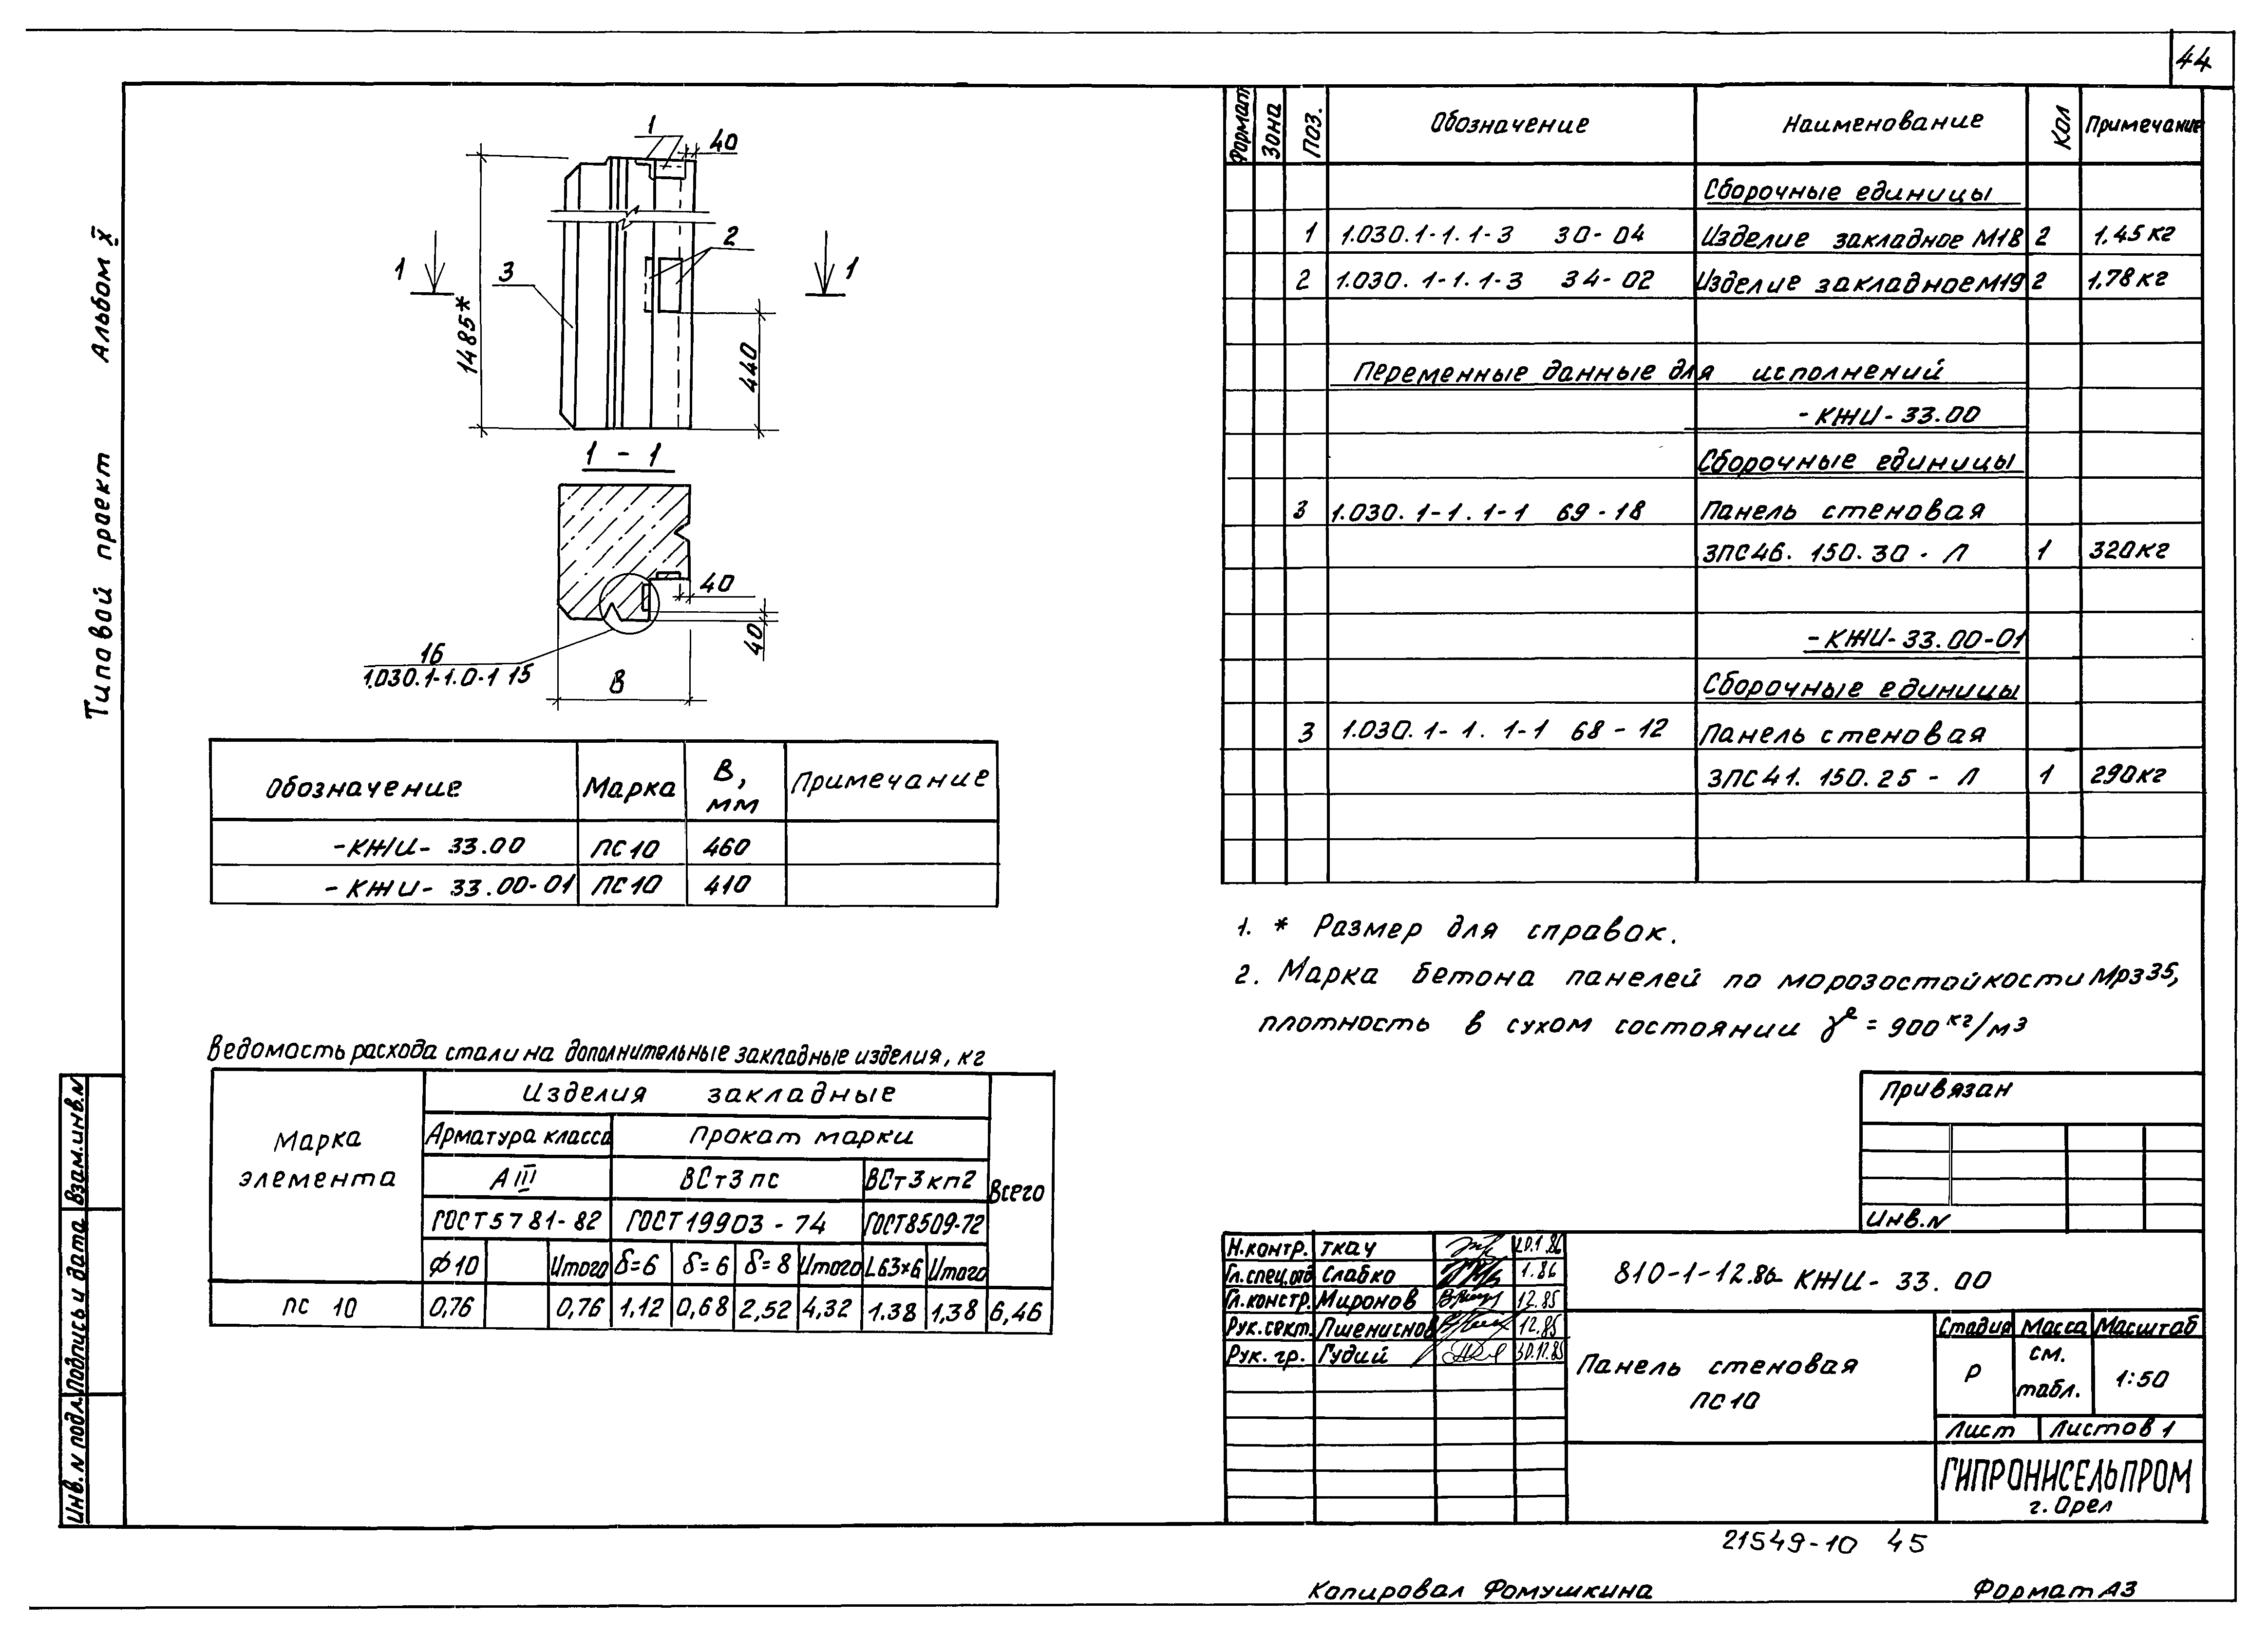 44
Типовой проект Альбом X
1
40
2
1 1
3
1485*
440
1 - 1
40
40
16
1.030.1-1.0-1 15
В
Обозначение Марка В, мм Примечание
-КЖИ- 33.00 ПС10 460
-КЖИ- 33.00-01 ПС10 410
Ведомость расхода стали на дополнительные закладные изделия, кг
Марка элемента Изделия закладные Всего
Арматура класса Прокат марки
А III ВСт3пс ВСт3кп2
ГОСТ 5781-82 ГОСТ 19903-74 ГОСТ 8509-72
ф10 Итого δ=6 δ=6 δ=8 Итого L63×6 Итого
ПС 10 0,76 0,76 1,12 0,68 2,52 4,32 1.38 1,38 6,46
Формат Зона Поз. Обозначение Наименование Кол Примечание
Сборочные единицы
1 1.030.1-1.1-3 30-04 Изделие закладное М18 2 1,45кг
2 1.030.1-1.1-3 34-02 Изделие закладное М19 2 1,78кг
Переменные данные для исполнений
-КЖИ-33.00
Сборочные единицы
3 1.030.1-1.1-1 69-18 Панель стеновая
3ПС46.150.30-Л 1 320кг
-КЖИ-33.00-01
Сборочные единицы
3 1.030.1-1.1-1 68-12 Панель стеновая
3ПС41.150.25-Л 1 290кг
1. * Размер для справок.
2. Марка бетона панелей по морозостойкости Мрз35,
плотность в сухом состоянии = 900 кг/м3
Привязан
Инв.N
Н.контр. Ткач 20.1.86
Гл.спец.отд Слабко 1.86
Гл.констр. Миронов 12.85
Рук.сект. Пшениснов 12.85
Рук. гр. Гудий 30.12.85
810-1-12.86 КЖИ- 33.00
Панель стеновая
ПС10
Стадия Масса Масштаб
Р см. табл. 1:50
Лист Листов 1
ГИПРОНИСЕЛЬПРОМ
г. Орел
Инв. N подл. Подпись и дата Взам.инв.N
21549-10 45
Копировал Фомушкина Формат А3